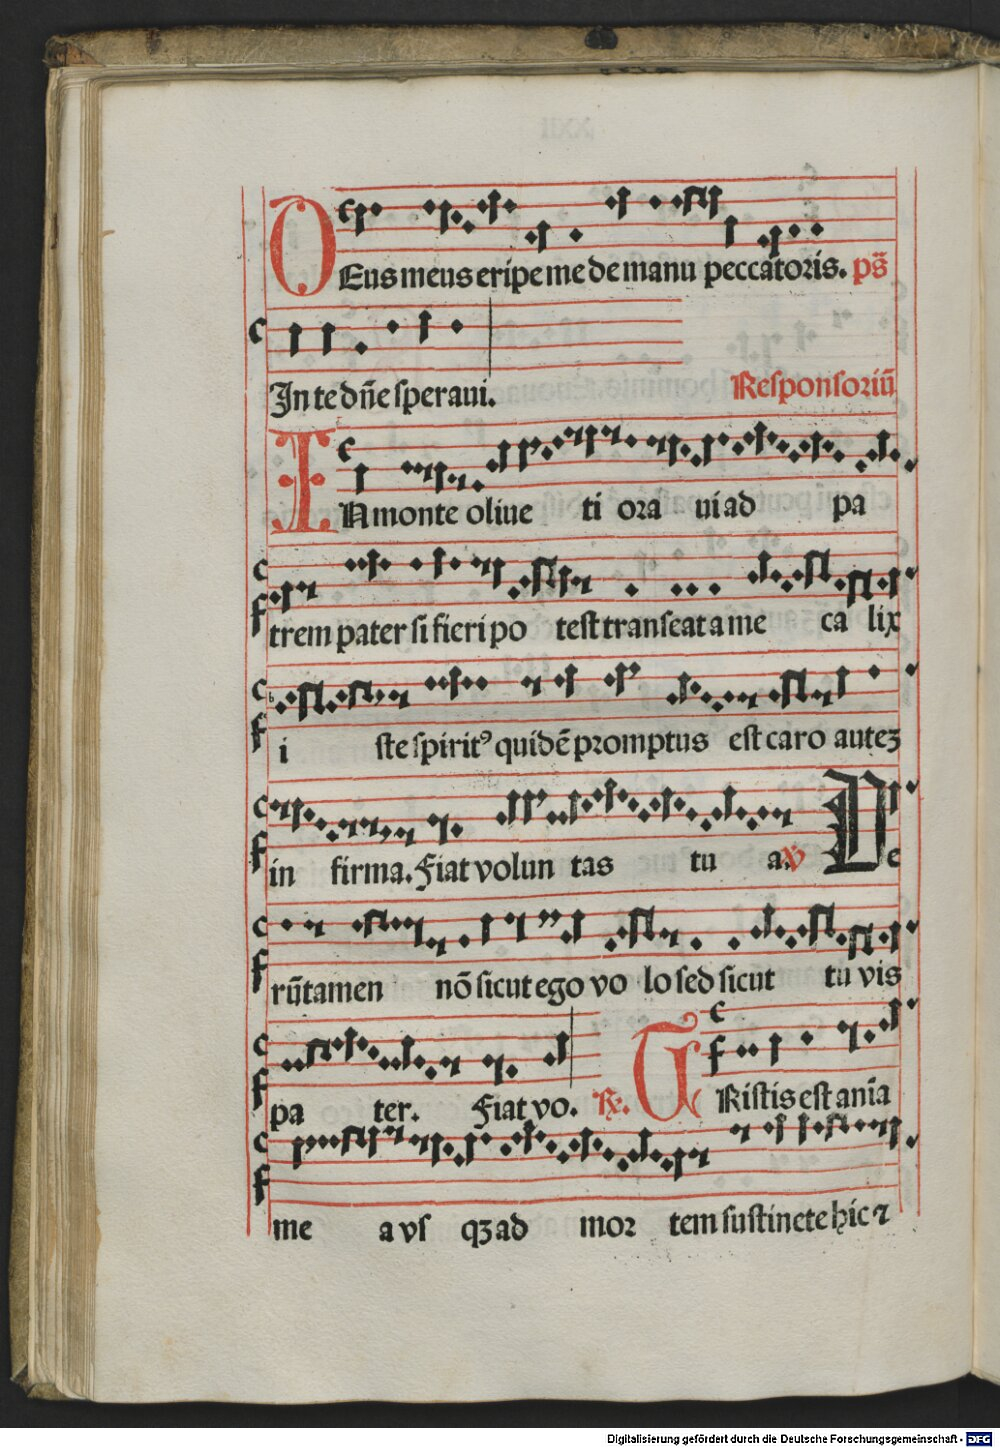 DEus meus eripe me de manu peccatoris. ps̄
In te dn̄e speraui. Responsoriū
IN monte oliue ti ora ui ad pa
trem pater si fieri po test transeat a me ca lix
i ste spiritꝰ quidē promptus est caro auteꝫ
in firma. Fiat volun tas tu a. ℣ Ve
rūtamen nō sicut ego vo lo sed sicut tu vis
pa ter. Fiat vo. ℞. TRistis est ani̅a
me a vs qꝫ ad mor tem sustinete hic ⁊
Digitalisierung gefördert durch die Deutsche Forschungsgemeinschaft - DFG